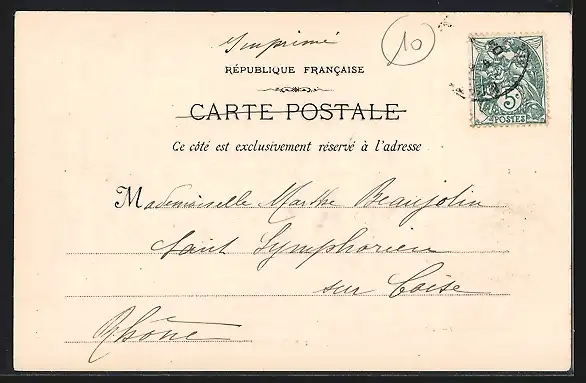 Imprimé
10
RÉPUBLIQUE FRANÇAISE
CARTE POSTALE
Ce côté est exclusivement réservé à l'adresse
5c
POSTES
Mademoiselle Marthe Beaujolin
Saint Symphorien
sur Coise
Rhône